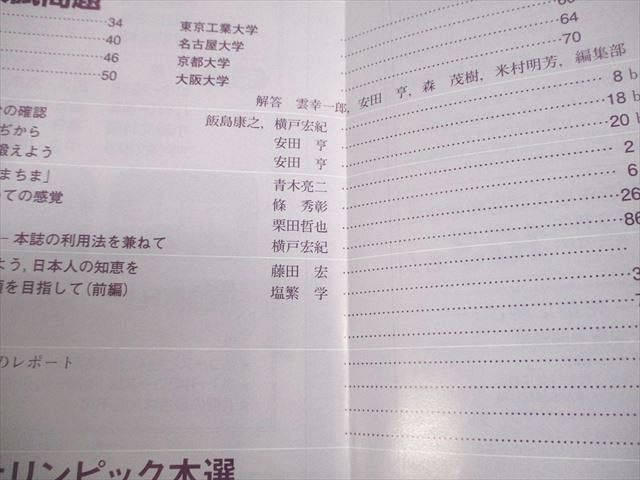 試問題
34 東京工業大学 64
40 名古屋大学 70
46 京都大学
50 大阪大学
解答 雲幸一郎, 安田 亨, 森 茂樹, 米村明芳, 編集部
の確認 飯島康之, 横戸宏紀 8 b
ぢから 安田 亨 18 b
鍛えよう 安田 亨 20 b
まちま」 青木亮二 2
ての感覚 條 秀彰 6
栗田哲也 26
本誌の利用法を兼ねて 横戸宏紀 86
よう, 日本人の知恵を 藤田 宏
を目指して(前編) 塩繁 学 3
のレポート
リンピック本選